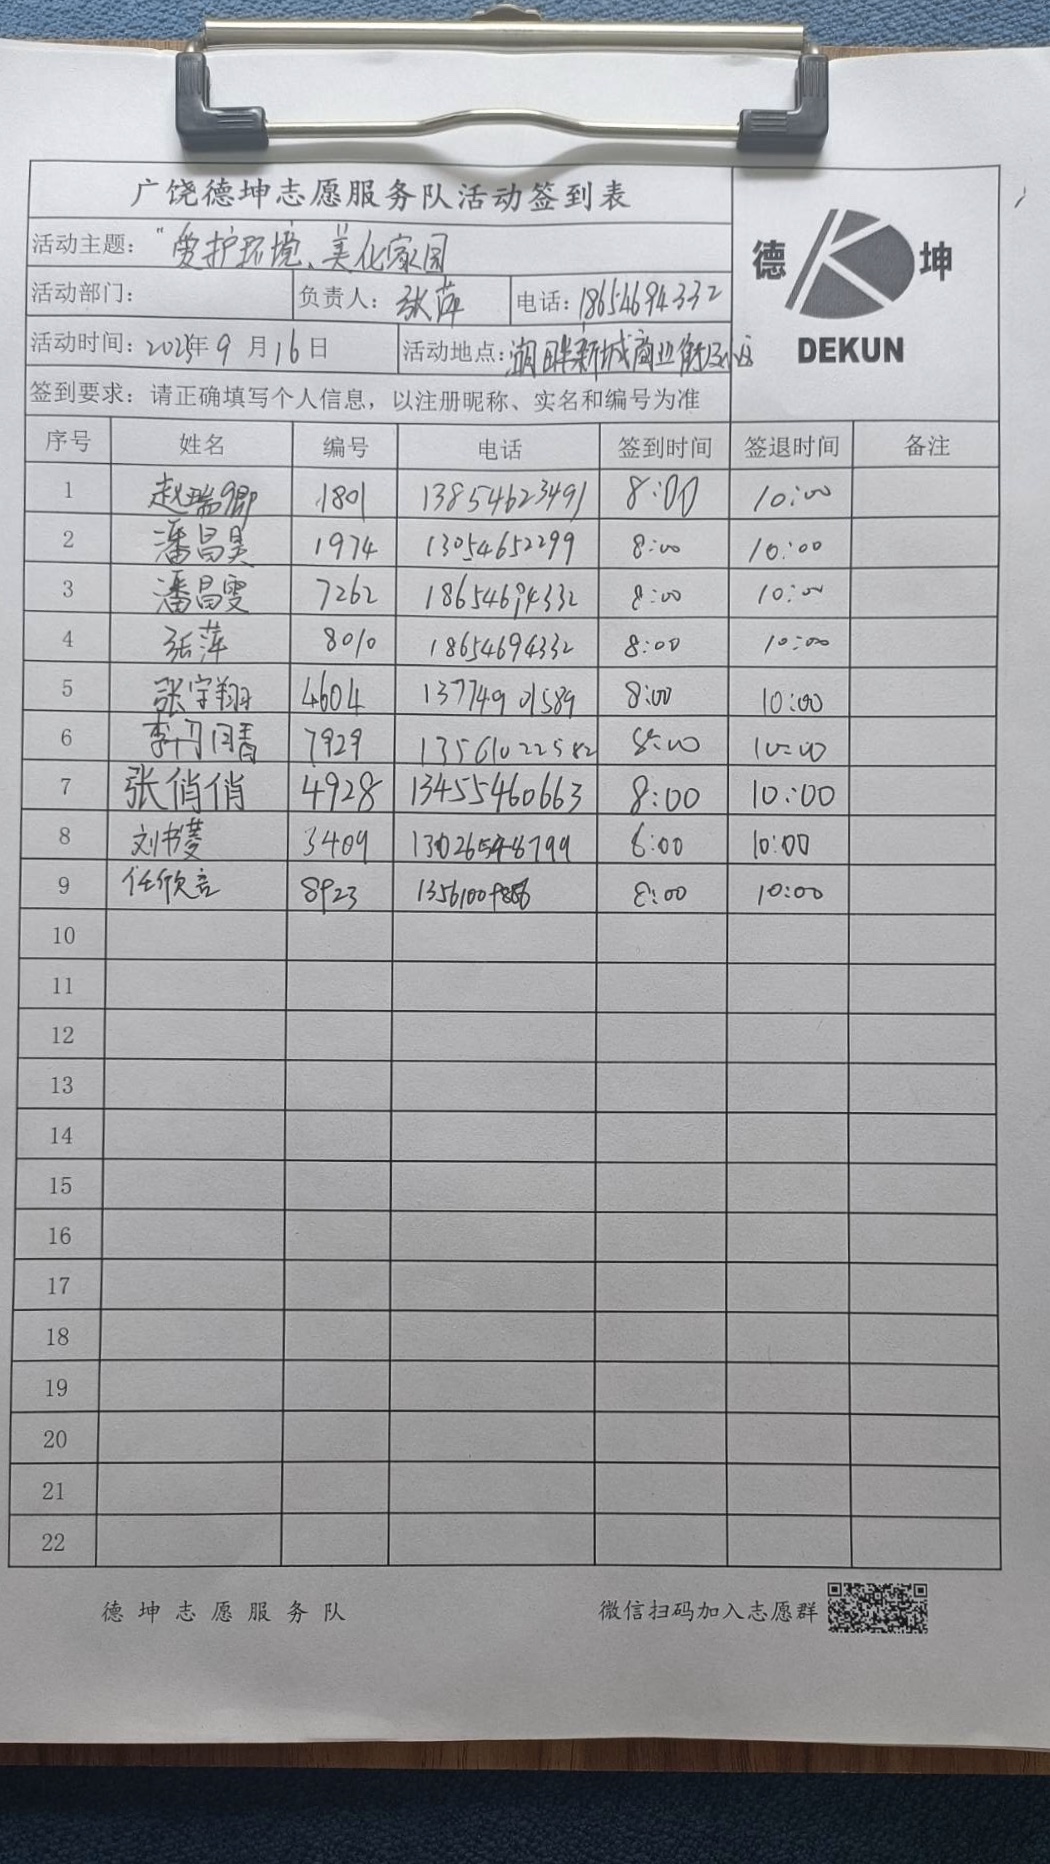 广饶德坤志愿服务队活动签到表
德 坤
DEKUN
活动主题：“爱护环境、美化家园
活动部门： 负责人：张萍 电话：18654694332
活动时间：2023年9月16日 活动地点：湖畔新城商业街及小区
签到要求：请正确填写个人信息，以注册昵称、实名和编号为准
序号 姓名 编号 电话 签到时间 签退时间 备注
1 赵瑞卿 1801 13854623491 8:00 10:00
2 潘昌昊 1974 13054652299 8:00 10:00
3 潘昌雯 7262 18654694332 8:00 10:00
4 张萍 8010 18654694332 8:00 10:00
5 张宇翔 4604 13774901589 8:00 10:00
6 李丹青 7929 13561022582 8:00 10:00
7 张俏俏 4928 13455460663 8:00 10:00
8 刘书菱 3409 8:00 10:00
9 任欣言 8923 8:00 10:00
10
11
12
13
14
15
16
17
18
19
20
21
22
德坤志愿服务队 微信扫码加入志愿群